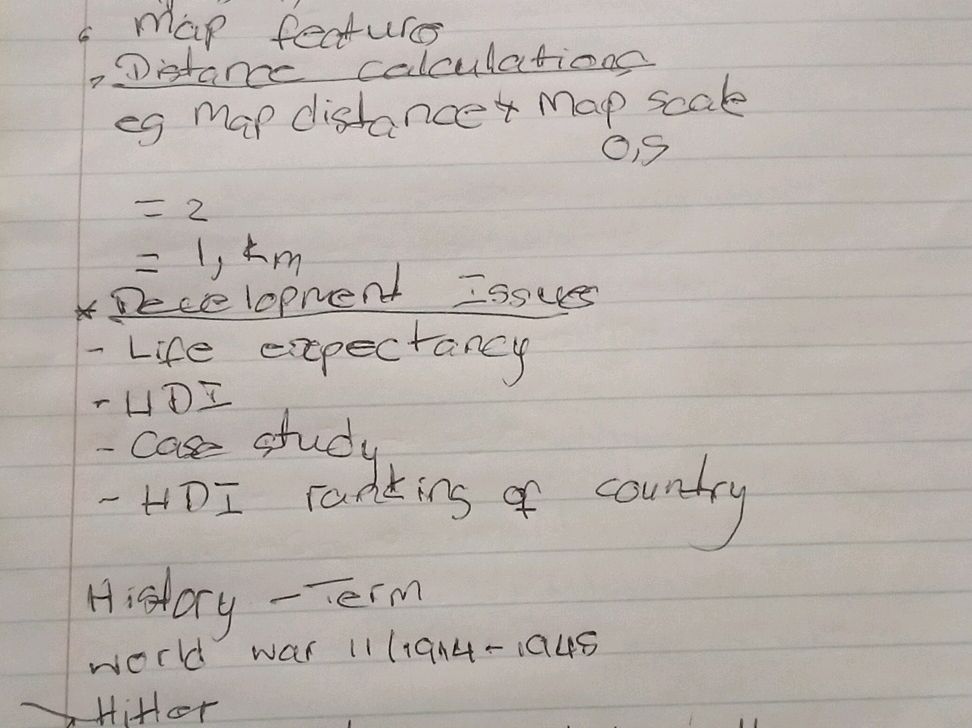 Map feature
Distance calculations
eg Map distance x Map scale
0,5
= 2
= 1, km
* Development Issues
- Life expectancy
- HDI
- Case study
- HDI ranking of country
History - Term
World war 11 (1914 - 1945
Hitler